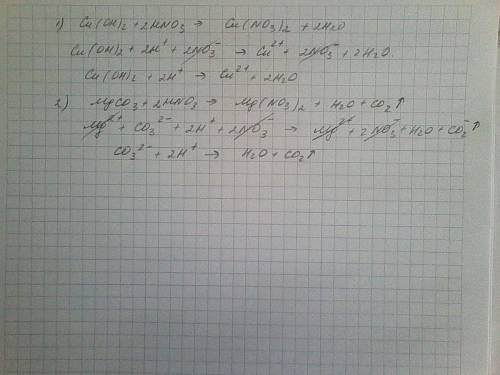 1) Cu(OH)2 + 2HNO3 → Cu(NO3)2 + 2H2O
Cu(OH)2 + 2H⁺ + 2NO3⁻ → Cu²⁺ + 2NO3⁻ + 2H2O.
Cu(OH)2 + 2H⁺ → Cu²⁺ + 2H2O
2) MgCO3 + 2HNO3 → Mg(NO3)2 + H2O + CO2↑
Mg²⁺ + CO3²⁻ + 2H⁺ + 2NO3⁻ → Mg²⁺ + 2NO3⁻ + H2O + CO2↑
CO3²⁻ + 2H⁺ → H2O + CO2↑